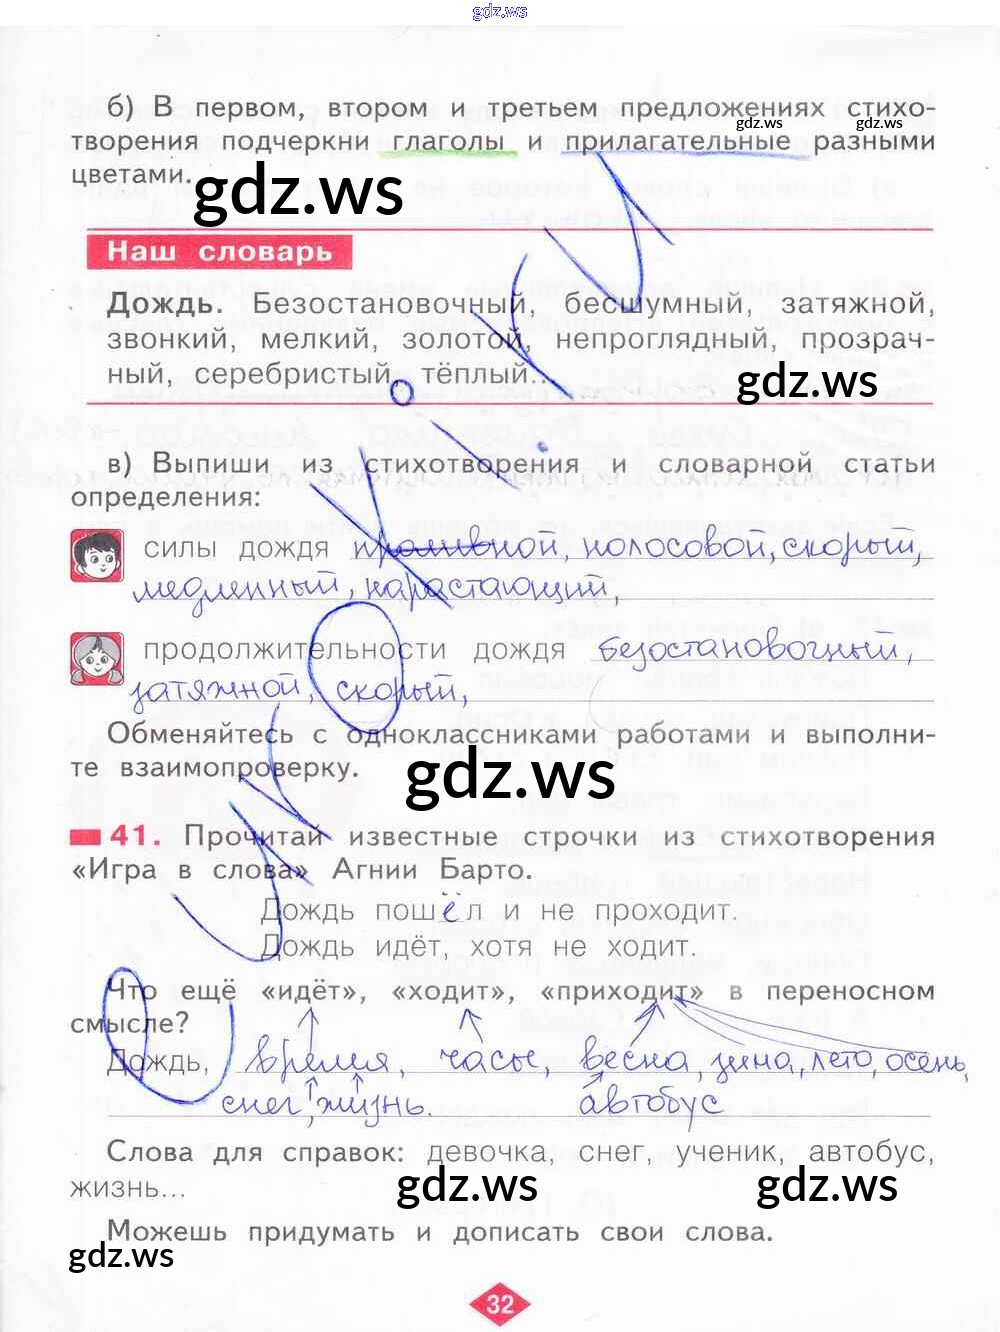 gdz.ws
б) В первом, втором и третьем предложениях стихо-
gdz.ws gdz.ws
творения подчеркни глаголы и прилагательные разными
цветами.
gdz.ws
Наш словарь
Дождь. Безостановочный, бесшумный, затяжной,
звонкий, мелкий, золотой, непроглядный, прозрач-
ный, серебристый, тёплый...
gdz.ws
в) Выпиши из стихотворения и словарной статьи
определения:
силы дождя проливной, полосовой, скорый,
медленный, нарастающий,
продолжительности дождя безостановочный,
затяжной, скорый,
Обменяйтесь с одноклассниками работами и выполни-
те взаимопроверку.
gdz.ws
41. Прочитай известные строчки из стихотворения
«Игра в слова» Агнии Барто.
Дождь пошёл и не проходит.
Дождь идёт, хотя не ходит.
Что ещё «идёт», «ходит», «приходит» в переносном
смысле?
Дождь, время, часы, весна, зима, лето, осень,
снег, жизнь. автобус
Слова для справок: девочка, снег, ученик, автобус,
жизнь...
gdz.ws gdz.ws
Можешь придумать и дописать свои слова.
gdz.ws
32